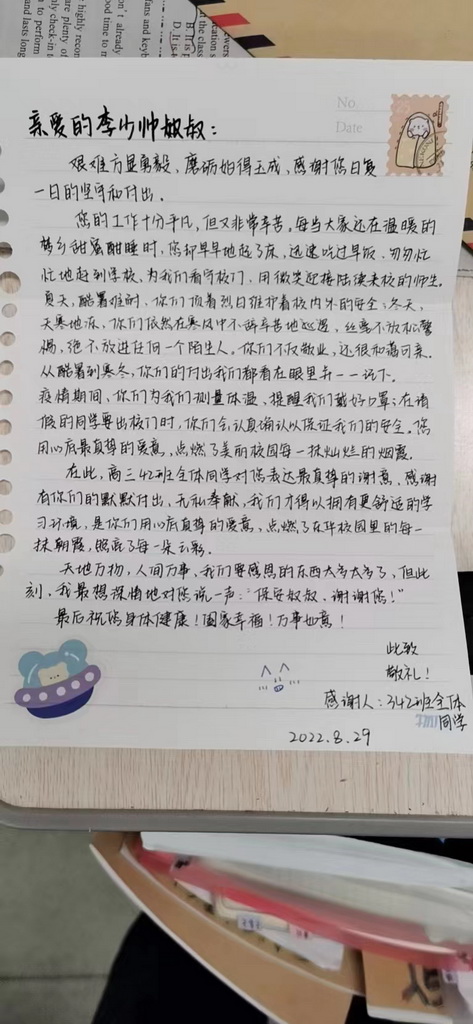 fans and keyb
D. It is
B. It is
the class
cation s
ewers
highly recor
nly check-in t
are plenty of
ood time to m
on't already
to perform
and lasts long
No.
Date
亲爱的李少帅叔叔：
艰难方显勇毅，磨砺始得玉成，感谢您日复
一日的坚守和付出。
您的工作十分平凡，但又非常辛苦。每当大家还在温暖的
梦乡甜蜜酣睡时，您却早早地起了床，迅速吃过早饭，匆匆忙
忙地赶到学校，为我们看守校门，用微笑迎接陆续来校的师生。
夏天，酷暑难耐，你们顶着烈日维护着校内外的安全；冬天，
天寒地冻，你们依然在寒风中不辞辛苦地巡逻，丝毫不放松警
惕，绝不放进任何一个陌生人。你们不仅敬业，还很和蔼可亲。
从酷暑到寒冬，你们的付出我们都看在眼里并一一记下。
疫情期间，你们为我们测量体温，提醒我们戴好口罩；在请
假的同学要出校门时，你们会认真确认以保证我们的安全。您
用心底最真挚的爱意，点燃了美丽校园每一抹灿烂的烟霞。
在此，高三42班全体同学对您表达最真挚的谢意，感谢
有你们的默默付出，无私奉献，我们才得以拥有更舒适的学
习环境，是你们用心底真挚的爱意，点燃了在华校园里的每一
抹朝霞，照亮了每一朵云彩。
天地万物，人间万事，我们要感恩的东西太多太多了，但此
刻，我最想深情地对您说一声："保安叔叔，谢谢您！"
最后祝您身体健康！阖家幸福！万事如意！
此致
敬礼！
感谢人：342班全体
同学
2022.8.29